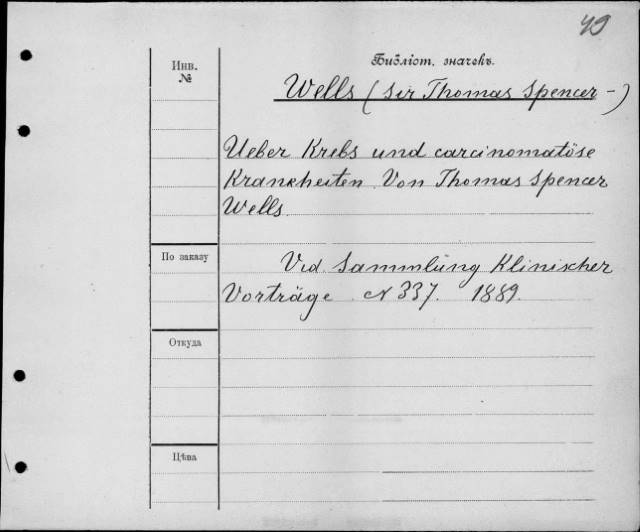 49
Инв.
№
Библіот. значекъ.
Wells (Sir Thomas Spencer –)
Ueber Krebs und carcinomatöse
Krankheiten. Von Thomas Spencer
Wells.
По заказу
Vid. Sammlung Klinischer
Vorträge N 337. 1889.
Откуда
Цѣна